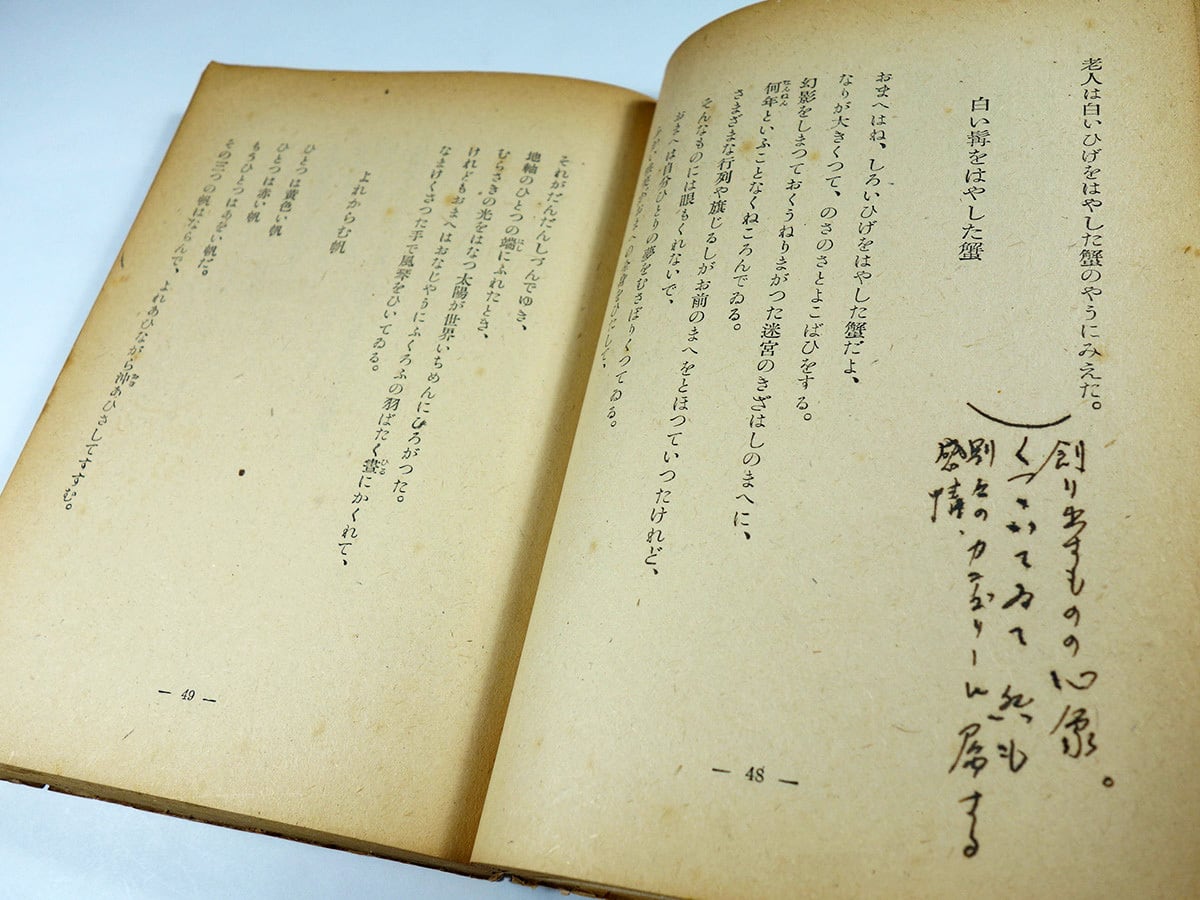 老人は白いひげをはやした蟹のやうにみえた。
白い髯をはやした蟹
おまへはね、しろいひげをはやした蟹だよ、
なりが大きくつて、のさのさとよこばひをする。
幻影をしまつておくうねりまがつた迷宮のきざはしのまへに、
何年といふことなくねころんでゐる。
さまざまな行列や旗じるしがお前のまへをとほつていつたけれど、
そんなものには眼もくれないで、
おまへは自分ひとりの夢をむさぼりくつてゐる。
創り出すものの心象。
くつついてゐて 然も
別々のカテゴリーに属する
感情、
— 48 —
それがだんだんしづんでゆき、
地軸のひとつの端にふれたとき、
むらさきの光をはなつ太陽が世界いちめんにひろがつた。
けれどもおまへはおなじやうにふくろふの羽ばたく晝にかくれて、
なまけくさつた手で風琴をひいてゐる。
よれからむ帆
ひとつは黄色い帆
ひとつは赤い帆
もうひとつはあをい帆だ。
その三つの帆はならんで、よれあひながら沖あひさしてすすむ。
— 49 —